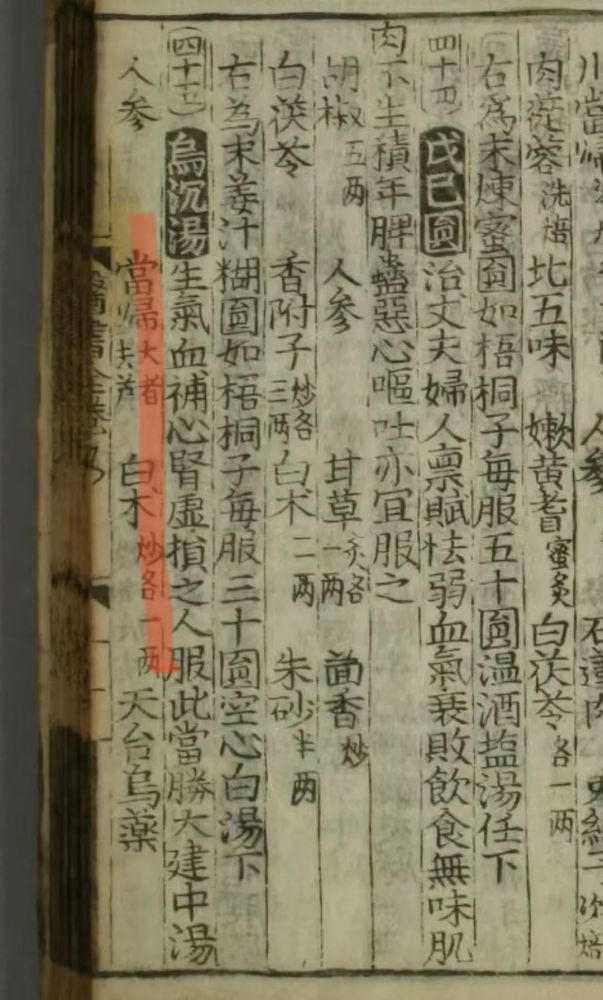 肉蓯蓉洗焙 北五味 嫩黃耆蜜炙 白茯苓各一两
右爲末煉蜜圓如梧桐子每服五十圓温酒塩湯任下
四十四 戊巳圓 治丈夫婦人禀賦怯弱血氣衰敗飲食無味肌
肉不生積年脾蠱惡心嘔吐亦宜服之
胡椒五两 人参 甘草炙各一两 茴香炒
白茯苓 香附子炒各三两 白术二两 朱砂半两
右為末姜汁糊圓如梧桐子每服三十圓空心白湯下
四十五 烏沉湯 生氣血補心腎虚損之人服此當勝大建中湯
人参 當歸大者去芦 白术炒各一两 天台烏藥